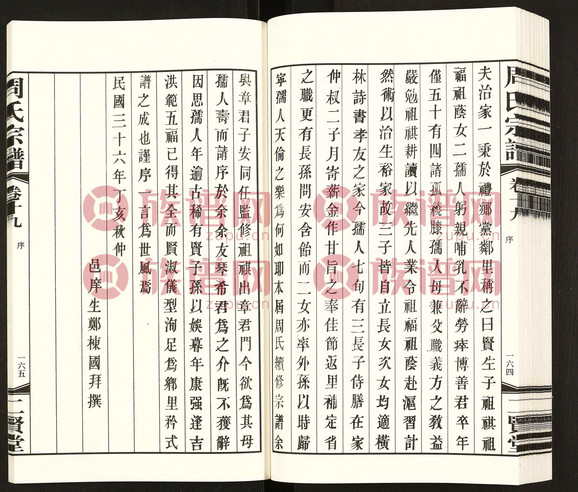 周氏宗譜
卷十九
序
一六四
二賢堂
夫治家一秉於禮鄉黨鄰里稱之曰賢生子祖祺祖
福祖蔭女二孺人躬親哺乳不辭勞瘁博善君卒年
僅五十有四諸孤繞膝孺人母兼父職義方之教益
嚴勉祖祺耕讀以繼先人業令祖福祖蔭赴滬習計
然術以治生裕家故三子皆自立長女次女均適橫
林詩書孝友之家今孺人七旬有三長子侍膝在家
仲叔二子月寄薪金作甘旨之奉佳節返里補定省
之職更有長孫問安含飴而二女亦率外孫以時歸
寧孺人天倫之樂爲何如耶本屆周氏續修宗譜余
與章君子安同任監修祖祺出章君門今欲爲其母
孺人壽而請序於余余友琴希君爲之介既不獲辭
因思孺人年逾古稀有賢子孫以娛暮年康强逢吉
洪範五福已得其全而賢淑儀型洵足爲鄉里矜式
譜之成也謹序一言爲世風焉
民國三十六年丁亥秋仲
邑庠生鄭棟國拜撰
周氏宗譜
卷十九
序
一六五
二賢堂
族谱网
zupu.cn